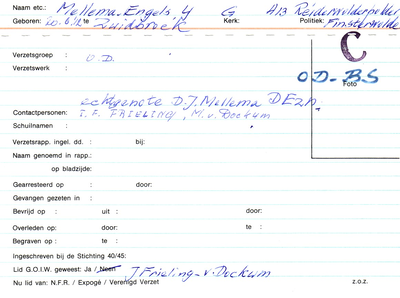 Naam etc.: Mellema-Engels, Y G A13 Reiderwolderpolder
Geboren: 20.6.12 te Zuidbroek Kerk: Politiek: Finsterwolde
C
Verzetsgroep : O.D.
Verzetswerk :
O D - BS
Foto
echtgenote D.J. Mellema DEzn.
Contactpersonen: T.F. FRIELING, M.v. Dockum
Schuilnaam :
Verzetsrapp. ingel. dd. : bij:
Naam genoemd in rapp.:
op bladzijde:
Gearresteerd op : door:
Gevangen gezeten in :
Bevrijd op : uit : door:
Overleden op : door: te :
Begraven op : te :
Ingeschreven bij de Stichting 40/45:
Lid G.O.I.W. geweest: Ja / Neen J Frieling - v. Dockum
Nu lid van: N.F.R. / Expogé / Verenigd Verzet z.o.z.